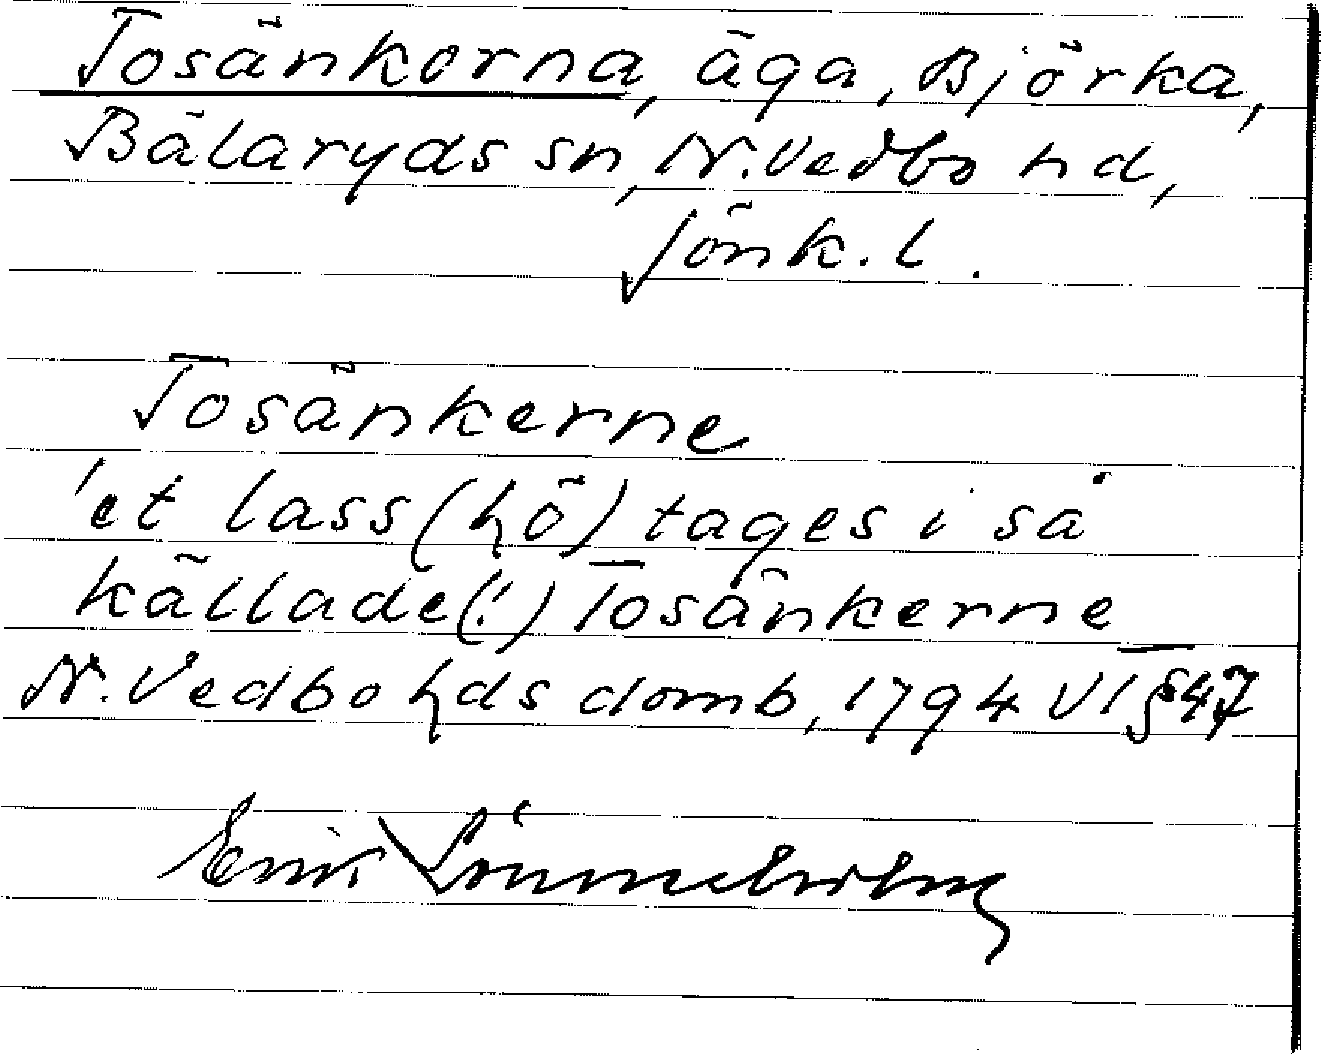 Tosänkorna, äga, Björka,
Bälaryds sn, N. Vedbo hd,
Jönk. l.
Tosänkerne
'et lass (hö) tages i så
källade(!) Tosänkerne
N. Vedbo hds domb, 1794 VI § 47
Erik